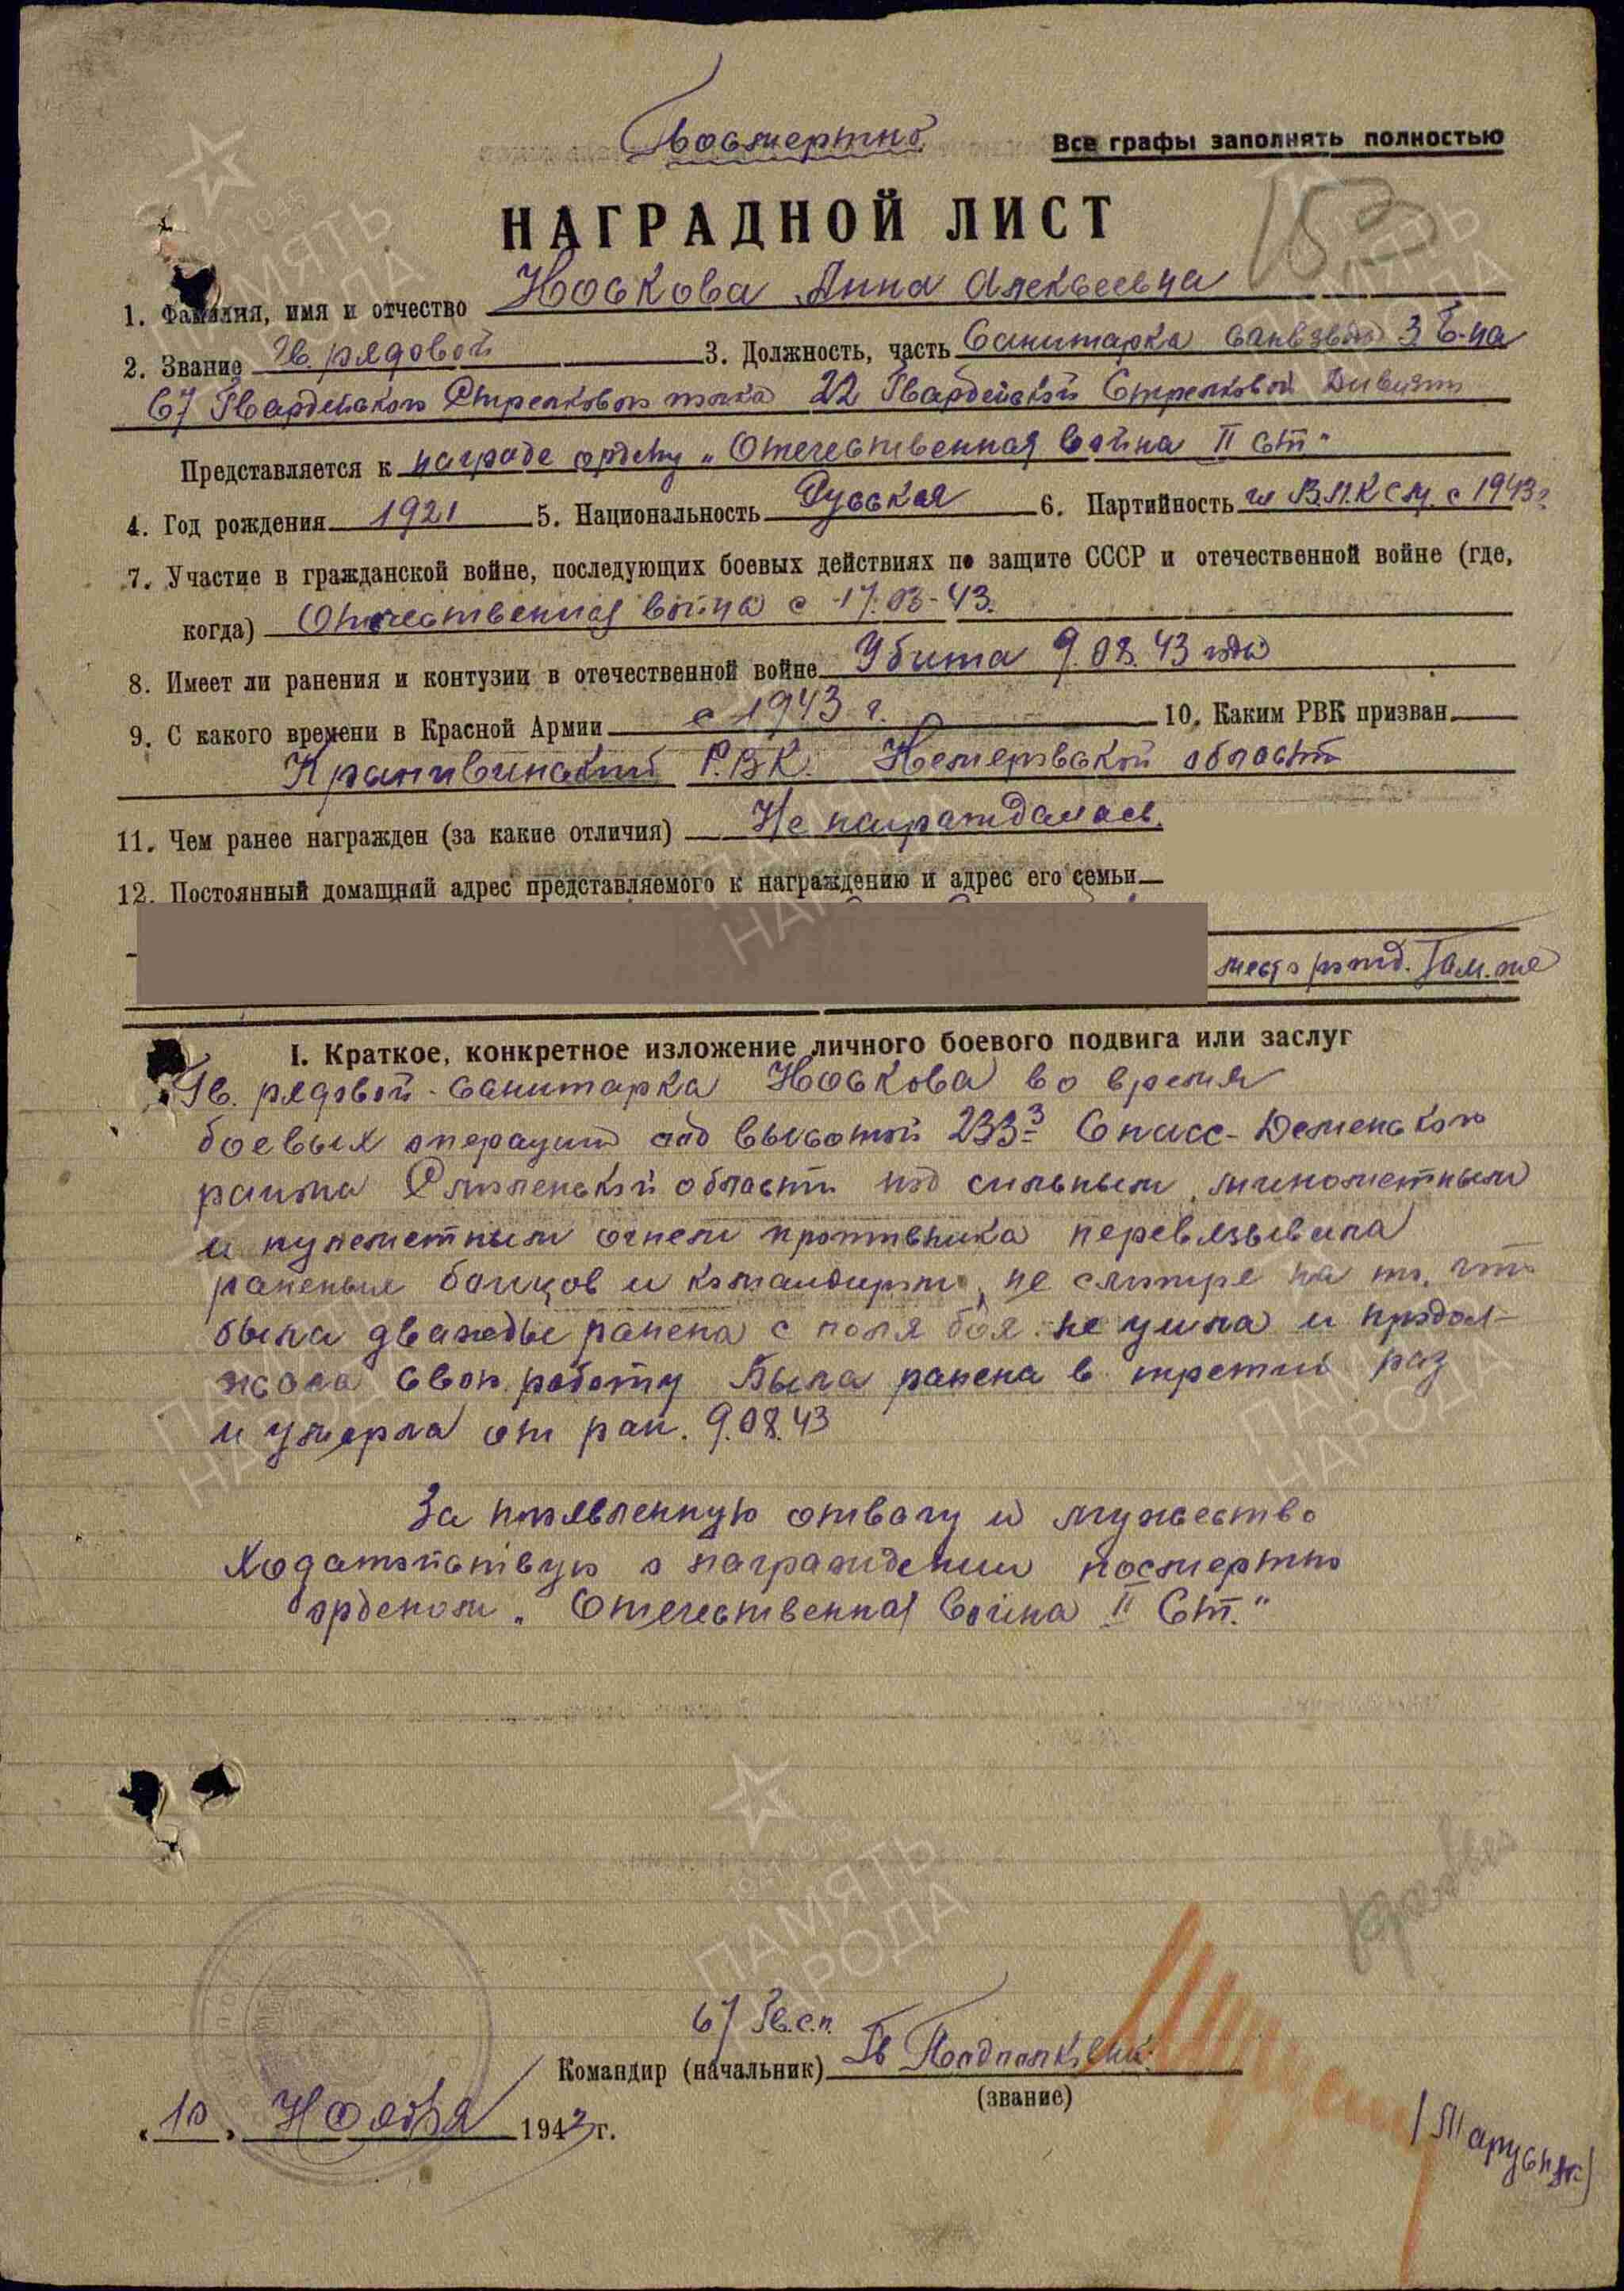 Посмертно
Все графы заполнять полностью
153
НАГРАДНОЙ ЛИСТ
1. Фамилия, имя и отчество Носкова Анна Алексеевна
2. Звание Гв. рядовой 3. Должность, часть Санитарка санвзвода 3 б-на
67 Гвардейского Стрелкового полка 22 Гвардейской Стрелковой Дивизии
Представляется к награде ордену „Отечественная война II ст"
4. Год рождения 1921 5. Национальность Русская 6. Партийность чл В.Л.К.С.М. с 1943г
7. Участие в гражданской войне, последующих боевых действиях по защите СССР и отечественной войне (где,
когда) Отечественная война с 17.03-43.
8. Имеет ли ранения и контузии в отечественной войне Убита 9.08.43 года
9. С какого времени в Красной Армии с 1943 г. 10. Каким РВК призван
Крапивинский Р.В.К. Кемеровской области
11. Чем ранее награжден (за какие отличия) Не награждалась.
12. Постоянный домашний адрес представляемого к награждению и адрес его семьи
место рожд. Там-же
I. Краткое, конкретное изложение личного боевого подвига или заслуг
Гв. рядовой-санитарка Носкова во время
боевых операций над высотой 233³ Спасс-Деменского
раиона Смоленской области под сильным, минометным
и пулеметным огнем противника перевязывала
раненые бойцов и командиров, не смотре на то, что
была дважды ранена с поля боя не ушла и продол-
жала свою работу Была ранена в третий раз
и умерла от ран. 9.08.43
За проявленную отвагу и мужество
Ходатайствую о награждении посмертно
орденом „Отечественная Война II Ст."
67 Гв.с.п.
Командир (начальник) Гв Подполковник
(звание)
„10" Ноября 1943г.
ПАМЯТЬ
НАРОДА